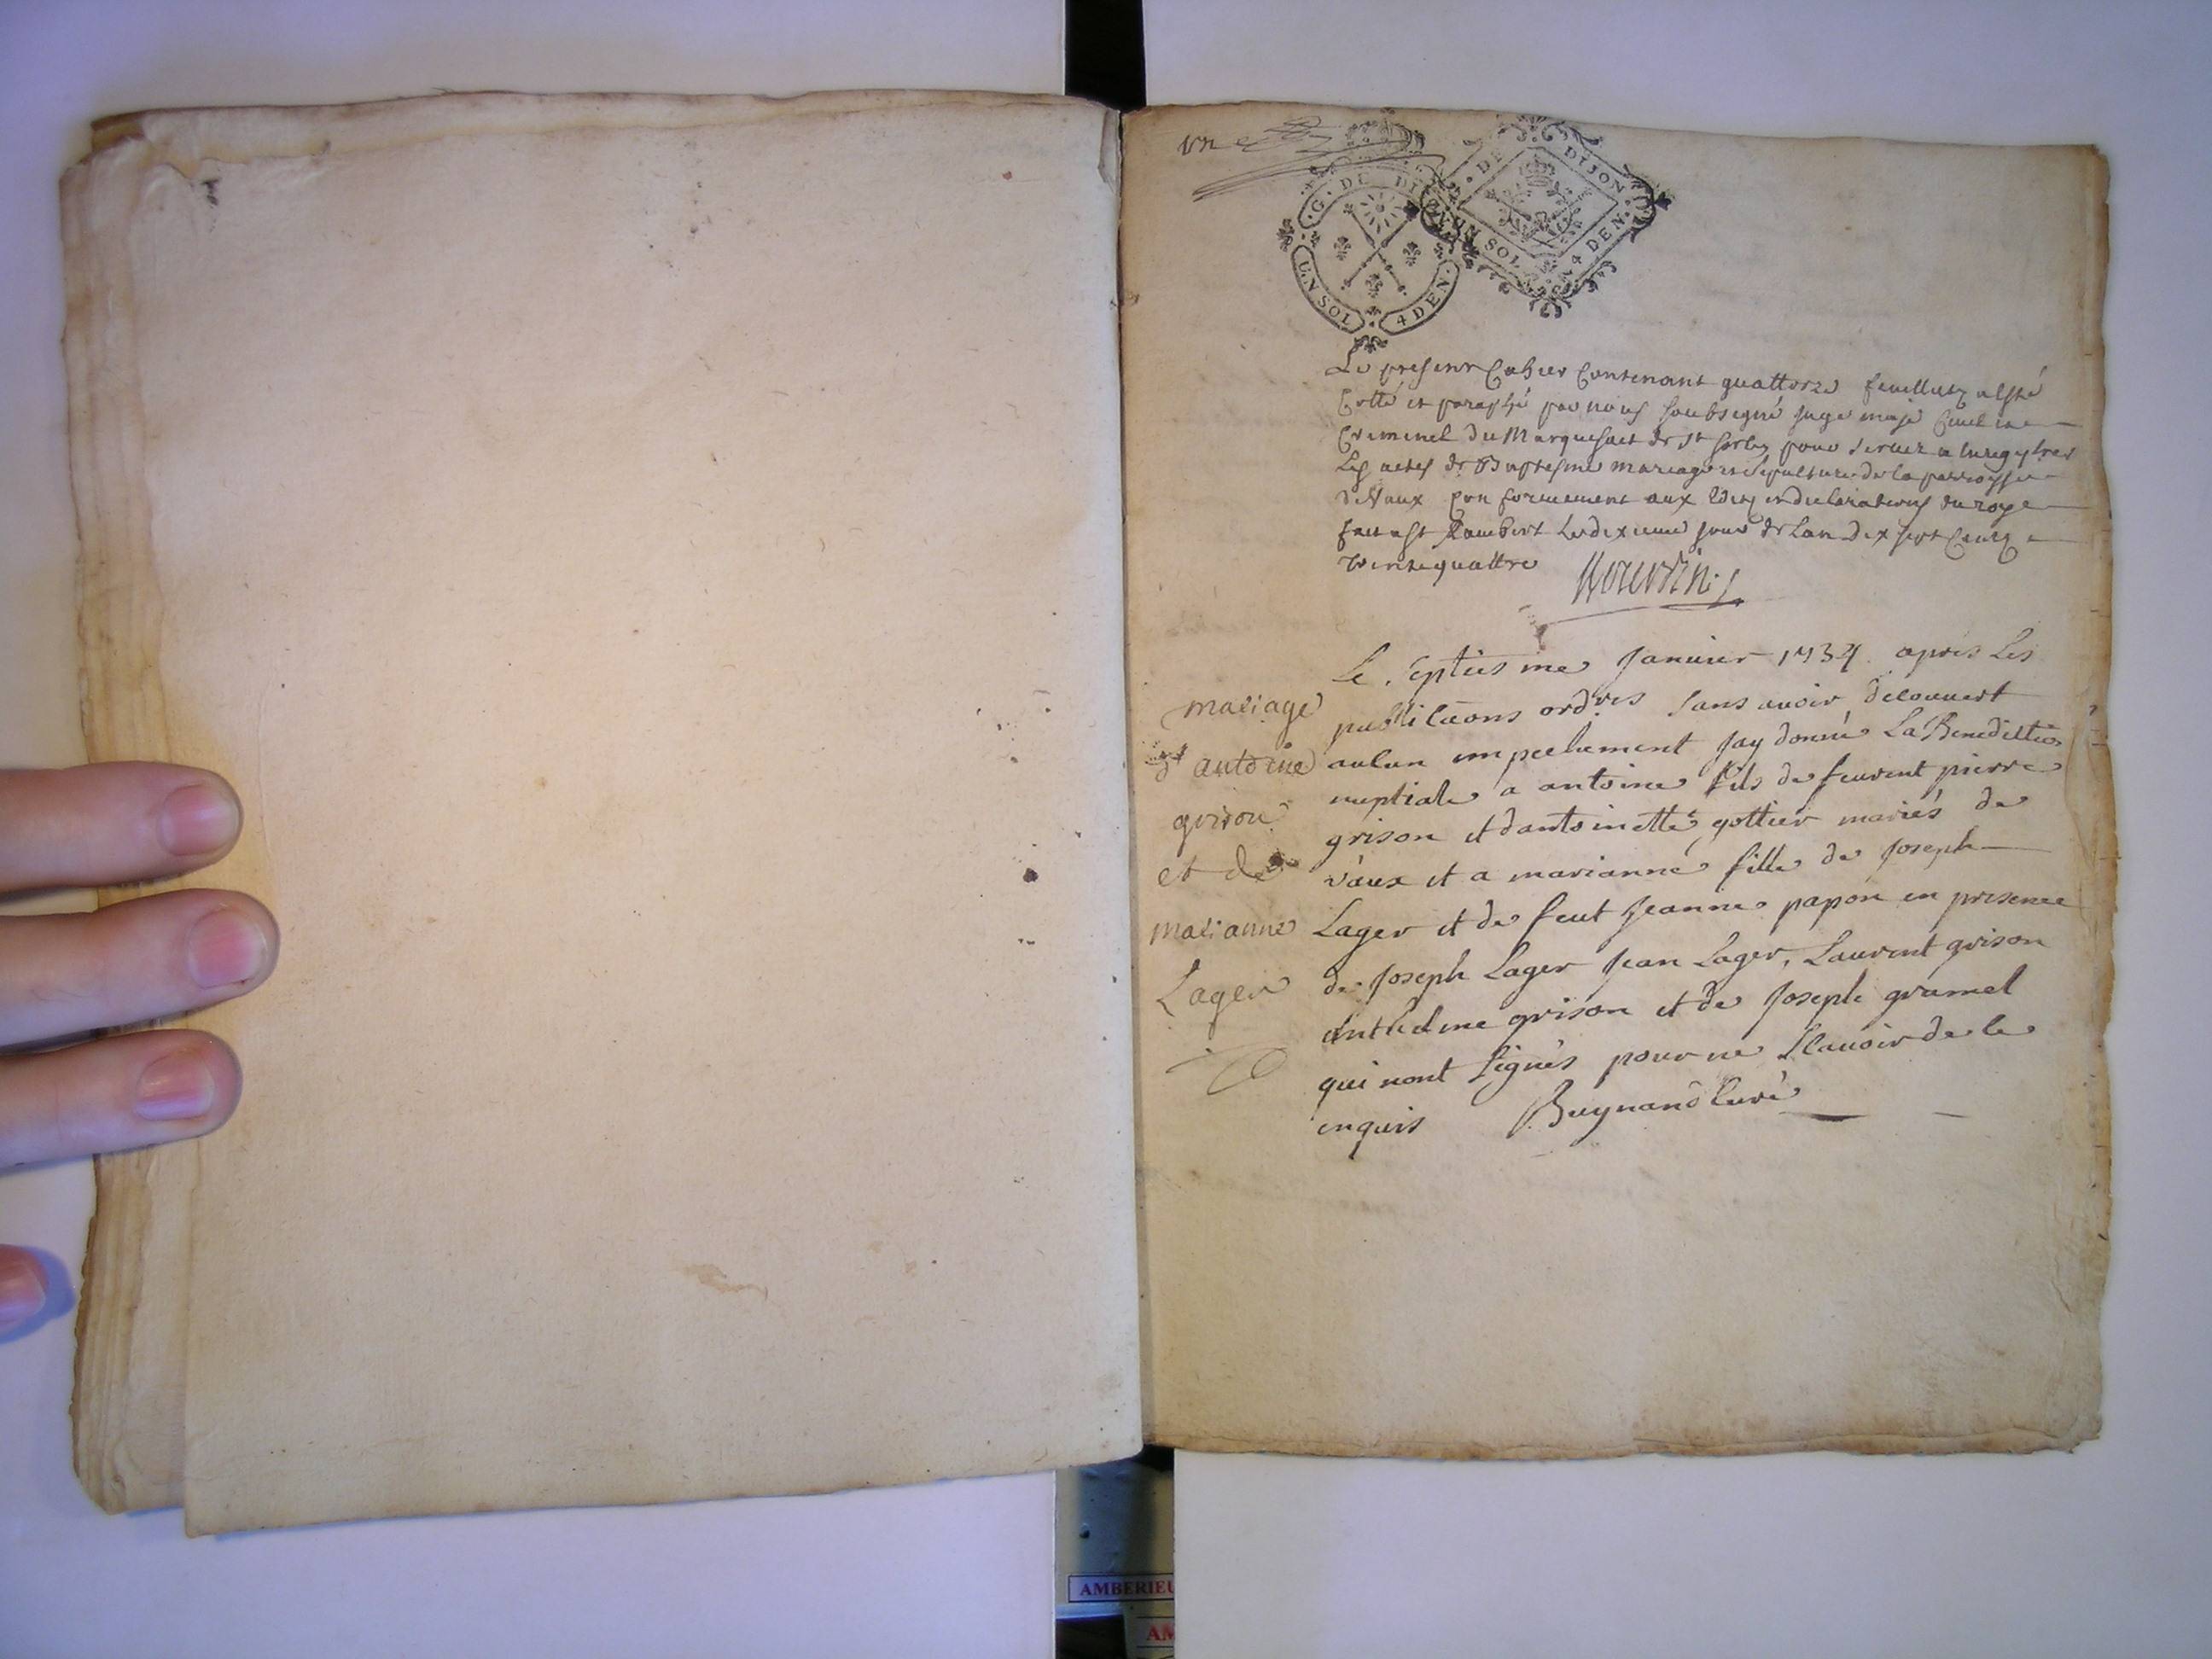 un
G. DE DI
UN SOL 4 DEN.
DE DIJON
UN SOL 4 DEN.
Le present Cahier Contenant quattorze feuilletz a esté
Cotté et paraphé par nous soubsigné juge maje Civil et
Criminel du Marquisact de st sorlin pour servir a enregistrer
Les actes de Baptesme mariage et sepulture de la parroisse
de Vaux Conformement aux Editz et declarations du roye
fait a st Rambert le dixieme jour de lan dix sept Centz
trente quattre
mariage
dt antoine
grison
et de
marianne
Lager
Le septiesme Janvier 1734 apres Les
publicaons ordres sans avoir decouvert
aucun empechement jay donné La Benediction
nuptiale a antoine fils de feurent pierre
grison et dantoinette gottier mariés de
vaux et a marianne fille de Joseph
Lager et de feut Jeanne papon en presence
de Joseph Lager Jean Lager, Laurent grison
anthelme grison et de Joseph gramel
qui nont signés pour ne scavoir de ce
enquis Buynand Curé
AMBERIEU
AM